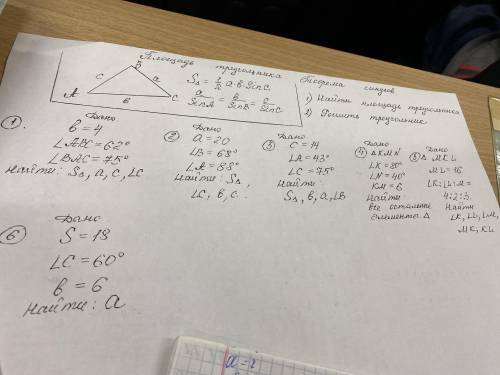 Площадь треугольника
Теорема синусов
B
c
a
A
b
C
S△ = 1/2 a·b·sin C
a/Sin A = b/Sin B = c/Sin C
1) Найти площадь треугольника
2) Решить треугольник
① Дано
b = 4
∠ABC = 62°
∠BAC = 75°
Найти: S△, a, c, ∠C
② Дано
a = 20
∠B = 68°
∠A = 88°
Найти: S△,
∠C, b, c.
③ Дано
C = 14
∠A = 43°
∠C = 75°
Найти:
S△, b, a, ∠B
④ Дано
△ KMN
∠K = 80°
∠N = 40°
KM = 6
Найти
все остальные
элементы △
⑤ Дано
△ MKL
ML = 16
∠K:∠L:∠M =
4:2:3.
Найти
∠K, ∠L, ∠M,
MK, KL
⑥ Дано
S = 18
∠C = 60°
b = 6
Найти: a